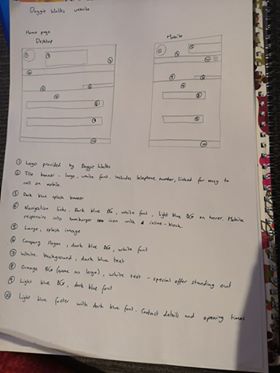 Doggie Walks website
Home page
Desktop
Mobile
① Logo provided by Doggie Walks
② Title banner - large, white font, includes telephone number, linked for easy to
call on mobile.
③ Dark blue splash banner
④ Navigation links. Dark blue BG, white font, light blue BG on hover. Mobile
responsive into hamburger icon with inline-block.
⑤ Large, splash image
⑥ Company slogan, dark blue BG, white font
⑦ White background, dark blue text
⑧ Orange BG (same as logo), white text - special offer standing out
⑨ Light blue BG, dark blue font
⑩ Light blue footer with dark blue font. Contact details and opening times